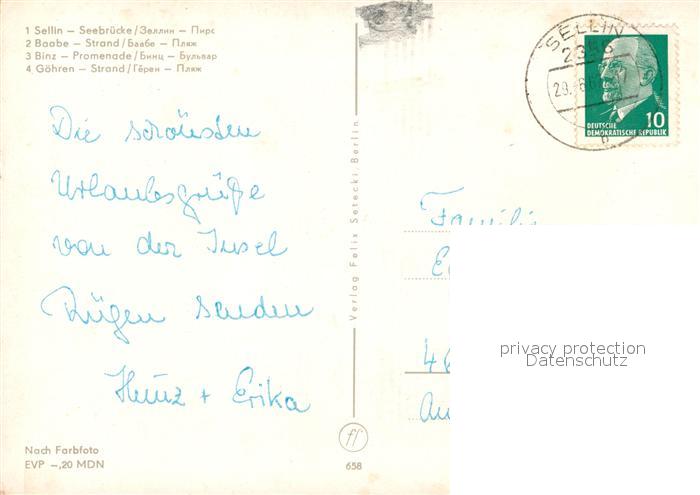 1 Sellin — Seebrücke/Зеллин — Пирс
2 Baabe — Strand/Баабе — Пляж
3 Binz — Promenade/Бинц — Бульвар
4 Göhren — Strand/Гёрен — Пляж
Die schönsten
Urlaubsgrüße
von der Insel
Rügen senden
Heinz + Erika
Nach Farbfoto
EVP —,20 MDN
Verlag Felix Setecki, Berlin
ff
658
SELLIN
2356
b
10
DEUTSCHE
DEMOKRATISCHE REPUBLIK
Familie
privacy protection
Datenschutz